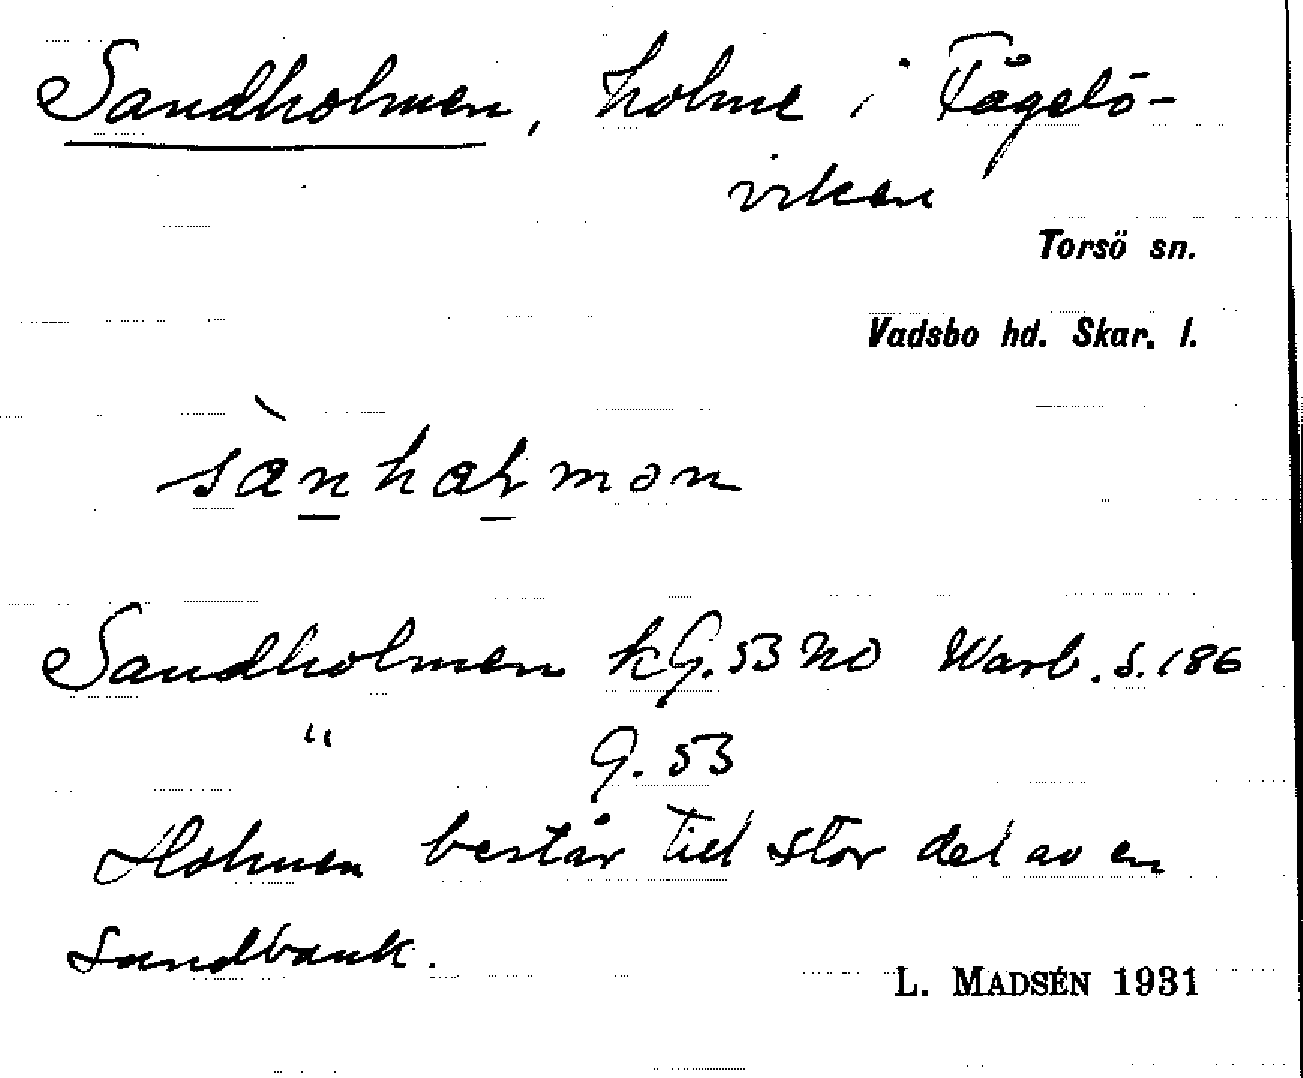 Sandholmen, holme i Fågelö-
viken
Torsö sn.
Vadsbo hd. Skar. l.
sàn̲hal̲mən
Sandholmen kG. 53 NO Warb. s. 186
" G. 53
Holmen består till stor del av en
sandbank.
L. MADSÉN 1931